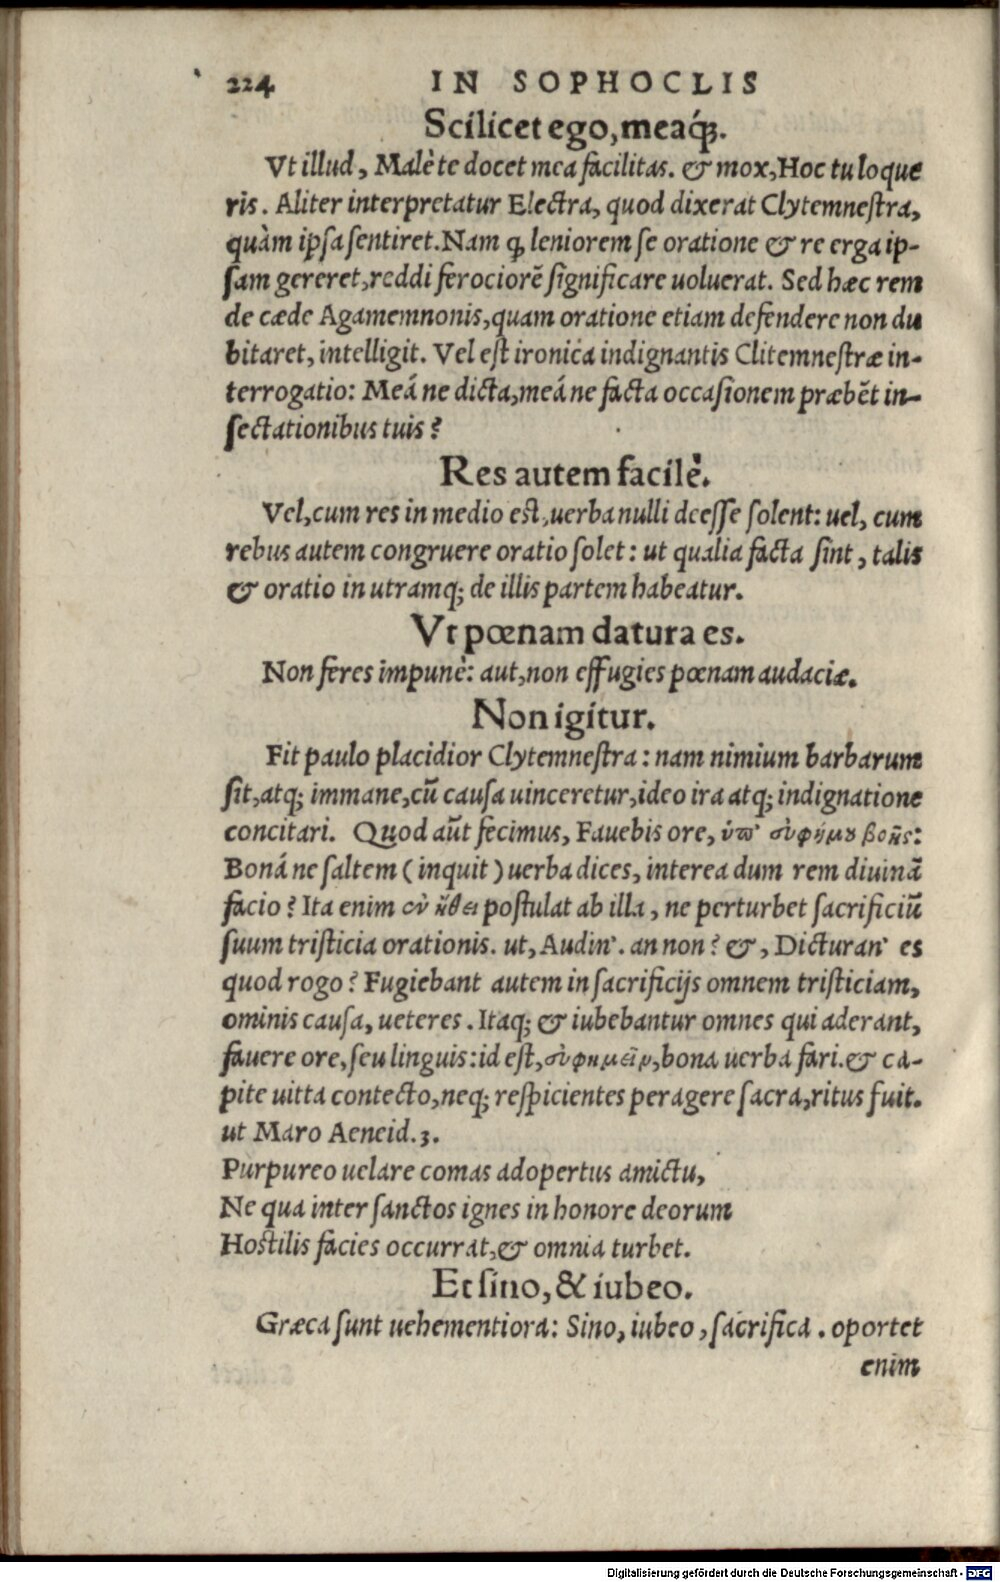 224 IN SOPHOCLIS
Scilicet ego, meaq́;.
Vt illud, Malè te docet mea facilitas. & mox, Hoc tu loque
ris. Aliter interpretatur Electra, quod dixerat Clytemnestra,
quàm ipsa sentiret. Nam ꝙ leniorem se oratione & re erga ip-
sam gereret, reddi ferociorē significare uoluerat. Sed hæc rem
de cæde Agamemnonis, quam oratione etiam defendere non du
bitaret, intelligit. Vel est ironica indignantis Clitemnestræ in-
terrogatio: Meá ne dicta, meá ne facta occasionem præbēt in-
sectationibus tuis?
Res autem facilè.
Vel, cum res in medio est, uerba nulli deesse solent: uel, cum
rebus autem congruere oratio solet: ut qualia facta sint, talis
& oratio in utramq; de illis partem habeatur.
Vt pœnam datura es.
Non feres impunè: aut, non effugies pœnam audaciæ.
Non igitur.
Fit paulo placidior Clytemnestra: nam nimium barbarum
sit, atq; immane, cū causa uinceretur, ideo ira atq; indignatione
concitari. Quod aūt fecimus, Fauebis ore, ὑπ' εὐφήμου βοῆς:
Boná ne saltem (inquit) uerba dices, interea dum rem diuinā
facio? Ita enim ἐν ἤθει postulat ab illa, ne perturbet sacrificiū
suum tristicia orationis. ut, Audin'. an non? &, Dicturan' es
quod rogo? Fugiebant autem in sacrificijs omnem tristiciam,
ominis causa, ueteres. Itaq; & iubebantur omnes qui aderant,
fauere ore, seu linguis: id est, εὐφημεῖν, bona uerba fari. & ca-
pite uitta contecto, neq; respicientes peragere sacra, ritus fuit.
ut Maro Aeneid. 3.
Purpureo uelare comas adopertus amictu,
Ne qua inter sanctos ignes in honore deorum
Hostilis facies occurrat, & omnia turbet.
Et sino, & iubeo.
Græca sunt uehementiora: Sino, iubeo, sacrifica. oportet
enim
Digitalisierung gefördert durch die Deutsche Forschungsgemeinschaft - DFG